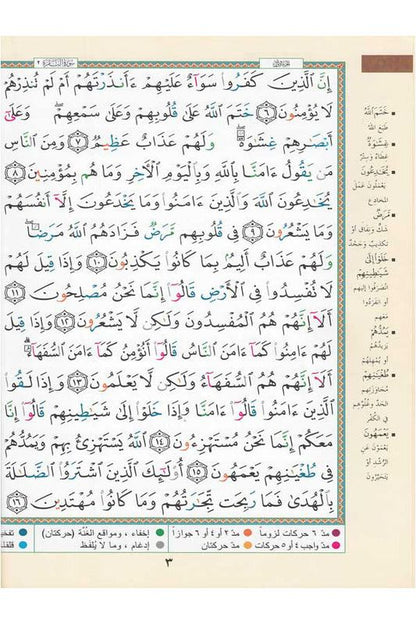 سورة البقرة ٢
الجزء الأول
إِنَّ ٱلَّذِينَ كَفَرُوا۟ سَوَآءٌ عَلَيْهِمْ ءَأَنذَرْتَهُمْ أَمْ لَمْ تُنذِرْهُمْ
لَا يُؤْمِنُونَ ٦ خَتَمَ ٱللَّهُ عَلَىٰ قُلُوبِهِمْ وَعَلَىٰ سَمْعِهِمْ ۖ وَعَلَىٰٓ
أَبْصَـٰرِهِمْ غِشَـٰوَةٌ ۖ وَلَهُمْ عَذَابٌ عَظِيمٌ ٧ وَمِنَ ٱلنَّاسِ
مَن يَقُولُ ءَامَنَّا بِٱللَّهِ وَبِٱلْيَوْمِ ٱلْـَٔاخِرِ وَمَا هُم بِمُؤْمِنِينَ ٨
يُخَـٰدِعُونَ ٱللَّهَ وَٱلَّذِينَ ءَامَنُوا۟ وَمَا يَخْدَعُونَ إِلَّآ أَنفُسَهُمْ
وَمَا يَشْعُرُونَ ٩ فِى قُلُوبِهِم مَّرَضٌ فَزَادَهُمُ ٱللَّهُ مَرَضًا ۖ
وَلَهُمْ عَذَابٌ أَلِيمٌۢ بِمَا كَانُوا۟ يَكْذِبُونَ ١٠ وَإِذَا قِيلَ لَهُمْ
لَا تُفْسِدُوا۟ فِى ٱلْأَرْضِ قَالُوٓا۟ إِنَّمَا نَحْنُ مُصْلِحُونَ ١١
أَلَآ إِنَّهُمْ هُمُ ٱلْمُفْسِدُونَ وَلَـٰكِن لَّا يَشْعُرُونَ ١٢ وَإِذَا قِيلَ
لَهُمْ ءَامِنُوا۟ كَمَآ ءَامَنَ ٱلنَّاسُ قَالُوٓا۟ أَنُؤْمِنُ كَمَآ ءَامَنَ ٱلسُّفَهَآءُ ۗ
أَلَآ إِنَّهُمْ هُمُ ٱلسُّفَهَآءُ وَلَـٰكِن لَّا يَعْلَمُونَ ١٣ وَإِذَا لَقُوا۟
ٱلَّذِينَ ءَامَنُوا۟ قَالُوٓا۟ ءَامَنَّا وَإِذَا خَلَوْا۟ إِلَىٰ شَيَـٰطِينِهِمْ قَالُوٓا۟ إِنَّا
مَعَكُمْ إِنَّمَا نَحْنُ مُسْتَهْزِءُونَ ١٤ ٱللَّهُ يَسْتَهْزِئُ بِهِمْ وَيَمُدُّهُمْ
فِى طُغْيَـٰنِهِمْ يَعْمَهُونَ ١٥ أُو۟لَـٰٓئِكَ ٱلَّذِينَ ٱشْتَرَوُا۟ ٱلضَّلَـٰلَةَ
بِٱلْهُدَىٰ فَمَا رَبِحَت تِّجَـٰرَتُهُمْ وَمَا كَانُوا۟ مُهْتَدِينَ ١٦
خَتَمَ اللَّهُ
طبع الله
غِشَاوَةٌ
غطاء و ستر
يُخَادِعُونَ
يعملون عمل
المخادع
مَرَضٌ
شك ونفاق أو
تكذيب وجحد
خَلَوْا إِلَى
شَيَاطِينِهِمْ
انصرفوا إليهم
أو انفردوا
معهم
يَمُدُّهُمْ
يزيدهم
أو يمهلهم
طُغْيَانِهِمْ
مجاوزتهم
الحد وغلوهم
في الكفر
يَعْمَهُونَ
يعمون عن
الرشد أو
يتحيرون
مدّ ٦ حركات لزوماً
مدّ ٢ أو ٤ أو ٦ جوازاً
إخفاء ، ومواقع الغُنّة (حركتان)
مدّ واجب ٤ أو ٥ حركات
مدّ حركتان
إدغام ، وما لا يُلفظ
٣